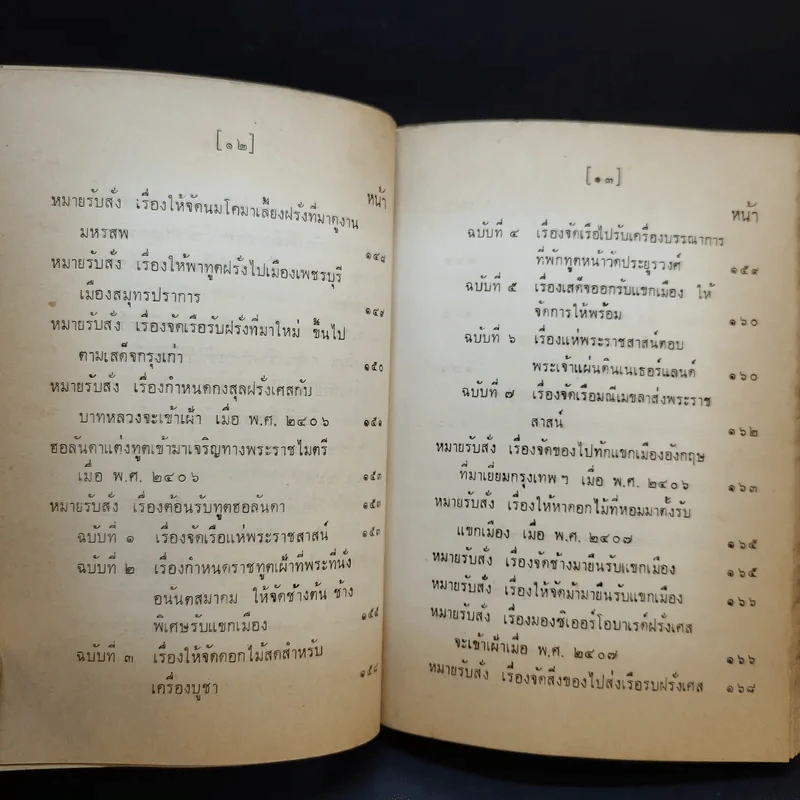 [๑๒]
หน้า
หมายรับสั่ง เรื่องให้จัดนมโคมาเลี้ยงฝรั่งที่มาดูงาน
มหรสพ ๑๔๘
หมายรับสั่ง เรื่องให้พาทูตฝรั่งไปเมืองเพชรบุรี
เมืองสมุทรปราการ ๑๔๙
หมายรับสั่ง เรื่องจัดเรือรับฝรั่งที่มาใหม่ ขึ้นไป
ตามเสด็จกรุงเก่า ๑๕๐
หมายรับสั่ง เรื่องกำหนดกงสุลฝรั่งเศสกับ
บาทหลวงจะเข้าเฝ้า เมื่อ พ.ศ. ๒๔๐๖ ๑๕๑
ฮอลันดาแต่งทูตเข้ามาเจริญทางพระราชไมตรี
เมื่อ พ.ศ. ๒๔๐๖ ๑๕๓
หมายรับสั่ง เรื่องต้อนรับทูตฮอลันดา ๑๕๓
ฉบับที่ ๑ เรื่องจัดเรือแห่พระราชสาสน์ ๑๕๓
ฉบับที่ ๒ เรื่องกำหนดราชทูตเฝ้าที่พระที่นั่ง
อนันตสมาคม ให้จัดช้างต้น ช้าง
พิเศษรับแขกเมือง ๑๕๕
ฉบับที่ ๓ เรื่องให้จัดดอกไม้สดสำหรับ
เครื่องบูชา ๑๕๘
[๑๓]
หน้า
ฉบับที่ ๔ เรื่องจัดเรือไปรับเครื่องบรรณาการ
ที่พักทูตหน้าวัดประยูรวงศ์ ๑๕๙
ฉบับที่ ๕ เรื่องเสด็จออกรับแขกเมือง ให้
จัดการให้พร้อม ๑๖๐
ฉบับที่ ๖ เรื่องแห่พระราชสาสน์ตอบ
พระเจ้าแผ่นดินเนเธอร์แลนด์ ๑๖๐
ฉบับที่ ๗ เรื่องจัดเรือมณีเมขลาส่งพระราช
สาสน์ ๑๖๒
หมายรับสั่ง เรื่องจัดของไปทักแขกเมืองอังกฤษ
ที่มาเยี่ยมกรุงเทพ ฯ เมื่อ พ.ศ. ๒๔๐๖ ๑๖๓
หมายรับสั่ง เรื่องให้หาดอกไม้ที่หอมมาตั้งรับ
แขกเมือง เมื่อ พ.ศ. ๒๔๐๗ ๑๖๕
หมายรับสั่ง เรื่องจัดช้างมายืนรับแขกเมือง ๑๖๕
หมายรับสั่ง เรื่องให้จัดม้ามายืนรับแขกเมือง ๑๖๖
หมายรับสั่ง เรื่องมองซิเออร์โอบาเรต์ฝรั่งเศส
จะเข้าเฝ้าเมื่อ พ.ศ. ๒๔๐๗ ๑๖๖
หมายรับสั่ง เรื่องจัดสิ่งของไปส่งเรือรบฝรั่งเศส ๑๖๘